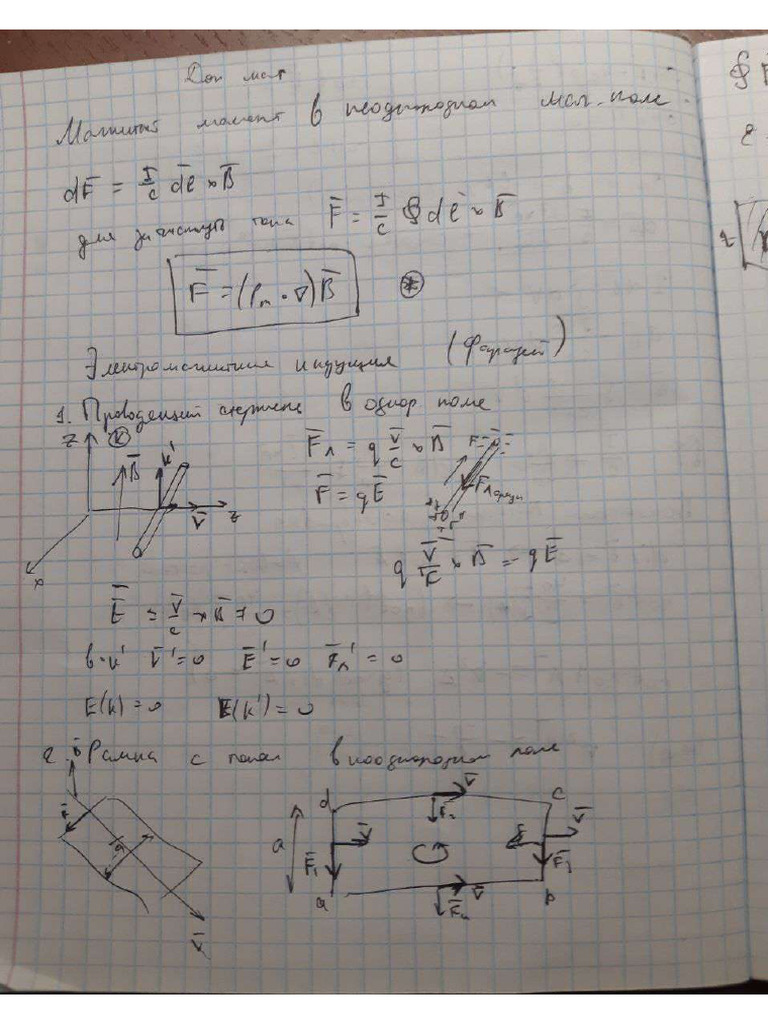 Доп мат
Магнитный момент в неоднородном маг. поле
dF̄ = I/c dl̄ × B̄
для замкнутого тока F̄ = I/c ∮ dl̄ × B̄
F̄ = (Pm · ∇) B̄ (*)
Электромагнитная индукция (Фарадей)
1. Проводящий стержень в однор поле
z K B̄ K' V̄ z x
F̄л = q V̄/c × B̄
F̄ = qĒ
q V̄/c × B̄ = -qĒ
Ē = V̄/c × B̄ ≠ 0
в K' V̄' = 0 Ē' = 0 F̄л' = 0
E(K) = 0 E(K') = 0
2. Рамка с током в неоднородном поле
d V̄ c
a F̄1 V̄ V̄ F̄3
a V̄ b